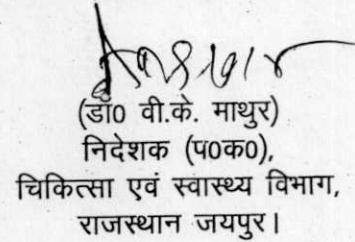 (डॉ0 वी.के. माथुर)
निदेशक (प0क0),
चिकित्सा एवं स्वास्थ्य विभाग,
राजस्थान जयपुर।